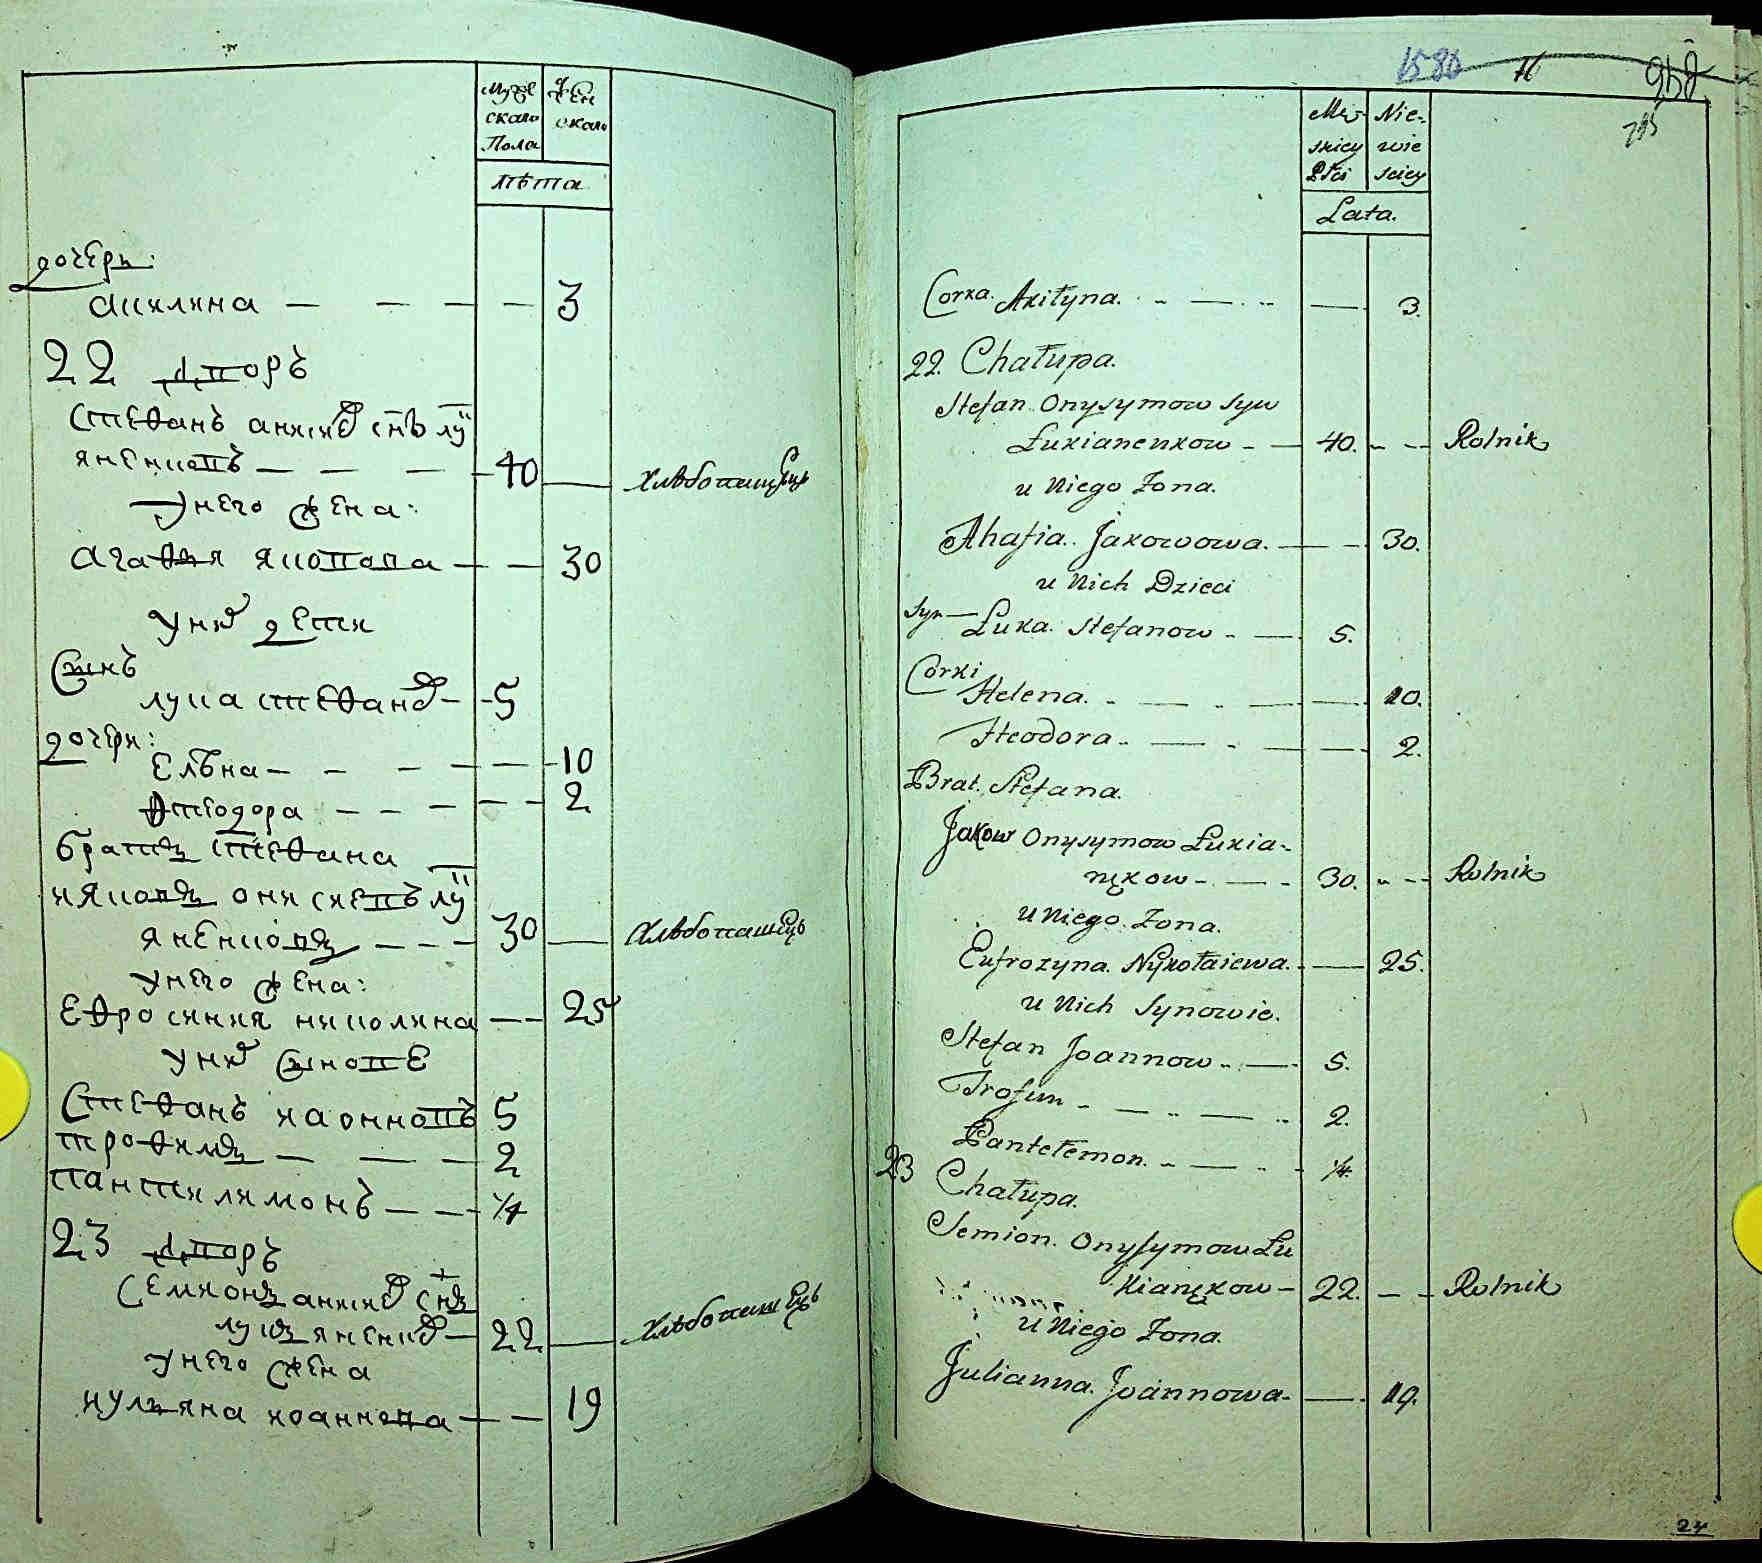 Муже
скаго
Пола
Жен
скаго
лѣта
дочери:
акилина — — — — 3
22 дворъ
Стефанъ анисіев снъ лу
яненковъ — — — 40 хлѣбопашецъ
Унего жена:
агафия яковова — — 30
Уних дети
Синъ
лука стефанов — 5
дочери:
Елѣна — — — — — 10
фтеодора — — — — — 2
братъ стефана
ияковъ онисиевъ лу
яненковъ — — — 30 хлѣбопашецъ
унего жена:
Ефросиния николина — — 25
Уних Синове
Стефанъ иоанновъ 5
трофимъ — — — 2
пантилимонъ — — 1/4
23 дворъ
Семионъ анисиев снъ
лукъяненков — 22 хлѣбопашецъ
унего жена
иулияна иоаннова — — 19
1580 16 958
Mę-
skiey
Płci
Nie-
wie
sciey
Lata.
Corka. Akiłyna. — 3.
22. Chałupa.
Stefan Onysymow Syn
Łukianenkow — 40. — Rolnik
u Niego Żona.
Ahafia. Jakowowa. — 30.
u Nich Dzieci
Syn — Łuka. Stefanow — 5.
Corki
Helena. — 10.
Fteodora — 2.
Brat. Stefana.
Jakow Onysymow Łukia-
nękow — 30. — Rolnik
u Niego Żona.
Eufrozyna. Nykołaiewa. — 25.
u Nich Synowie.
Stefan Joannow — 5.
Trofim — 2.
Pantełemon. — 1/4.
23 Chałupa.
Semion. Onysymow Łu
kianękow — 22. — Rolnik
u Niego Żona.
Julianna. Joannowa — 19.
24